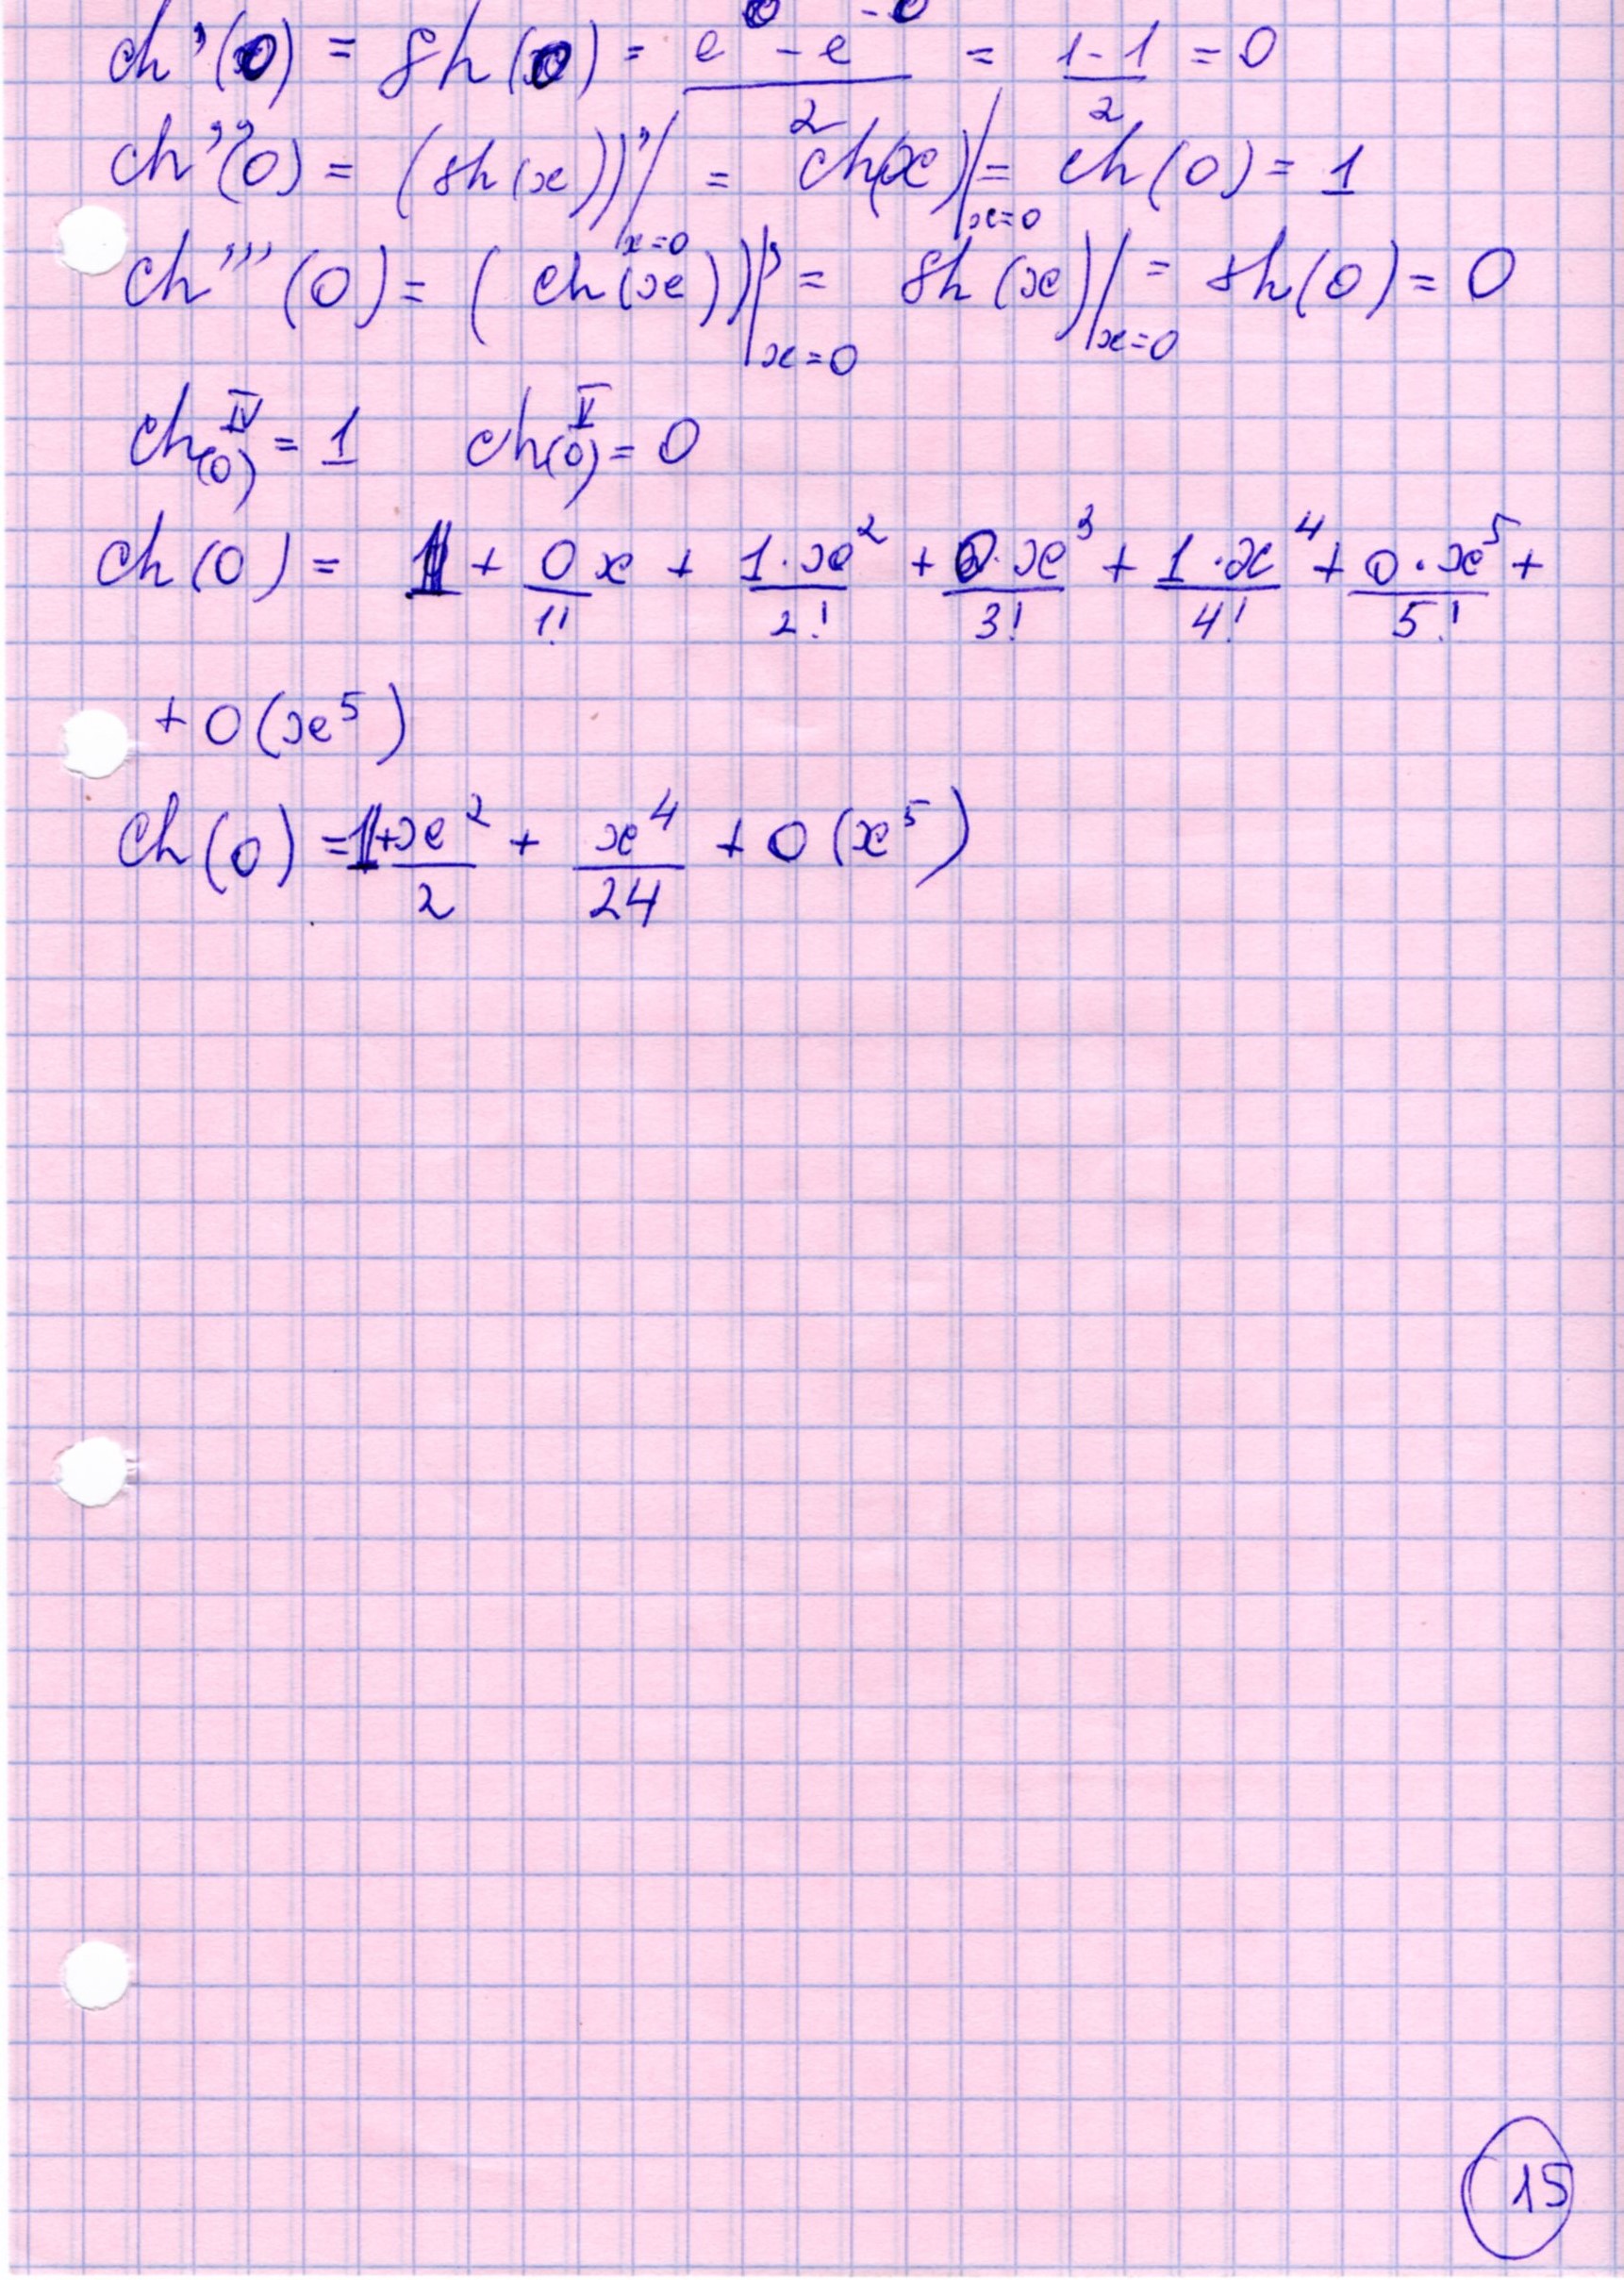 ch'(0) = sh(0) = (e^0 - e^-0)/2 = (1-1)/2 = 0
ch''(0) = (sh(x))'|x=0 = ch(x)|x=0 = ch(0) = 1
ch'''(0) = (ch(x))'|x=0 = sh(x)|x=0 = sh(0) = 0
ch^IV(0) = 1 ch^V(0) = 0
ch(0) = 1 + 0/1! x + 1·x^2/2! + 0·x^3/3! + 1·x^4/4! + 0·x^5/5! +
+ 0(x^5)
ch(0) = 1 + x^2/2 + x^4/24 + 0(x^5)
15